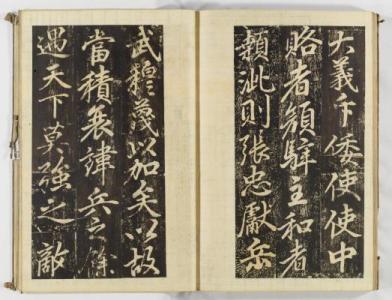 大義于倭使使中
賂者頠駐王和者
頼泚則張忠獻岳
武穆蔑以加矣以故
當積衰諱兵之餘
遇天下莫強之敵